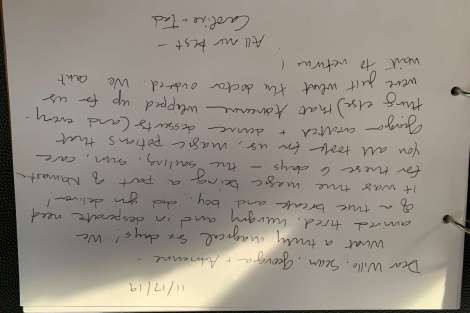 11/17/19
Dear Willo, Sean, Georgia + Adrienne -
What a truly magical six days! We
arrived tired, hungry and in desperate need
of a true break and boy, did you deliver!
It was true magic being a part of Namaste
for these 6 days - the sailing, sun, care
you all took for us, magic potions that
Georgia crafted + dinner + desserts (and every-
thing else) that Adrienne whipped up for us
were just what the doctor ordered. We can't
wait to return!
All my best -
Caroline + Tad